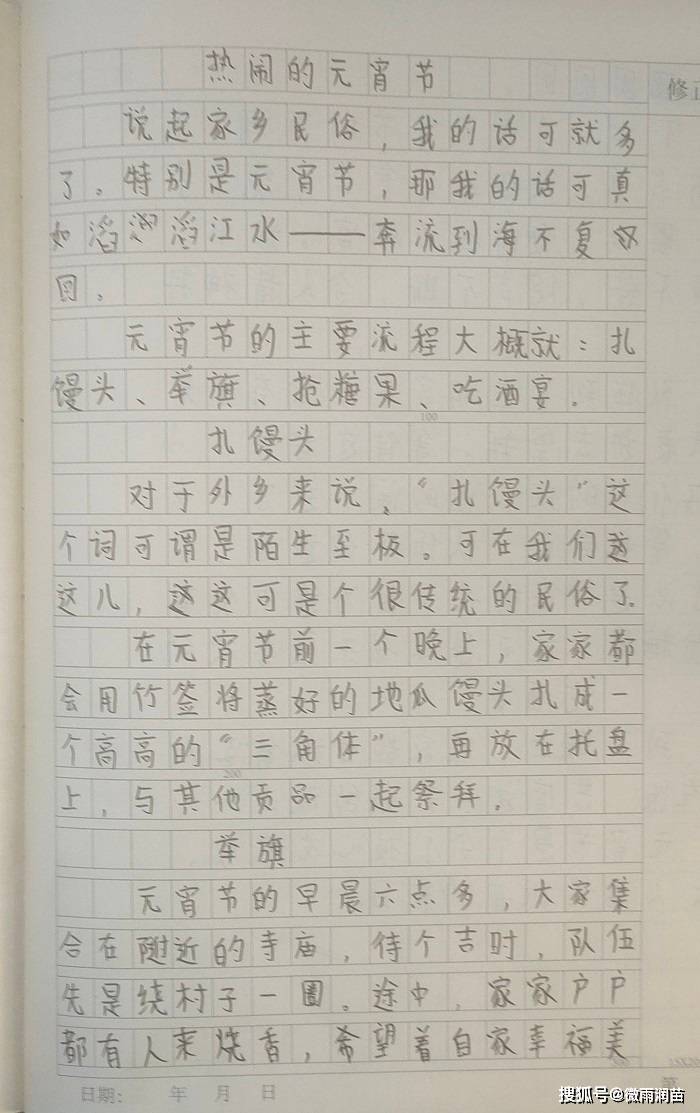 热闹的元宵节
修正
说起家乡民俗，我的话可就多
了。特别是元宵节，那我的话可真
如滔滔江水——奔流到海不复
回。
元宵节的主要流程大概就：扎
馒头、举旗、抢糖果、吃酒宴。
100
扎馒头
对于外乡来说，“扎馒头”这
个词可谓是陌生至极。可在我们这
这儿，这这可是个很传统的民俗了。
在元宵节前一个晚上，家家都
会用竹签将蒸好的地瓜馒头扎成一
个高高的“三角体”，再放在托盘
200
上，与其他贡品一起祭拜。
举旗
元宵节的早晨六点多，大家集
合在附近的寺庙，待个吉时，队伍
先是绕村子一圈。途中，家家户户
都有人来烧香，希望着自家幸福美
日期： 年 月 日
第
搜狐号@微雨润苗